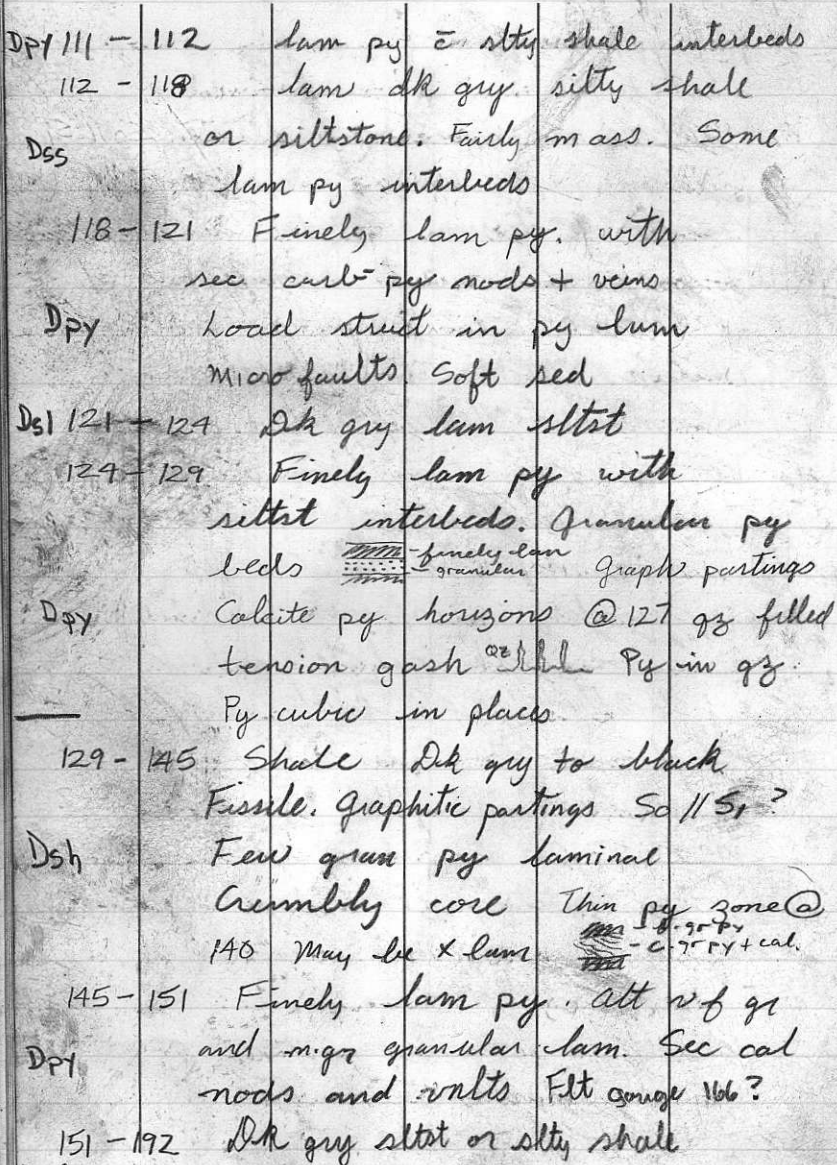 Dpy 111 - 112 lam py c̄ slty shale interbeds
112 - 118 lam dk gry silty shale
Dss or siltstone. Fairly mass. Some
lam py interbeds
118 - 121 Finely lam py. with
sec carb-py nods + veins
Dpy Load struct in py lam
Micro faults. Soft sed
Dsl 121 - 124 Dk gry lam sltst
124 - 129 Finely lam py with
siltst interbeds. Granular py
beds - finely lam - granular Graph partings
Dpy Calcite py horizons @ 127 qz filled
tension gash Qz Py in qz
Py cubic in places
129 - 145 Shale Dk gry to black
Fissile. Graphitic partings So // S1 ?
Dsh Few gran py laminae
Crumbly core Thin py zone @
140 May be x lam - f.gr py - c.gr py + cal.
145 - 151 Finely lam py. Alt v f gr
Dpy and m.gr granular lam. Sec cal
nods and vnlts Flt gouge 166 ?
151 - 192 Dk gry sltst or slty shale